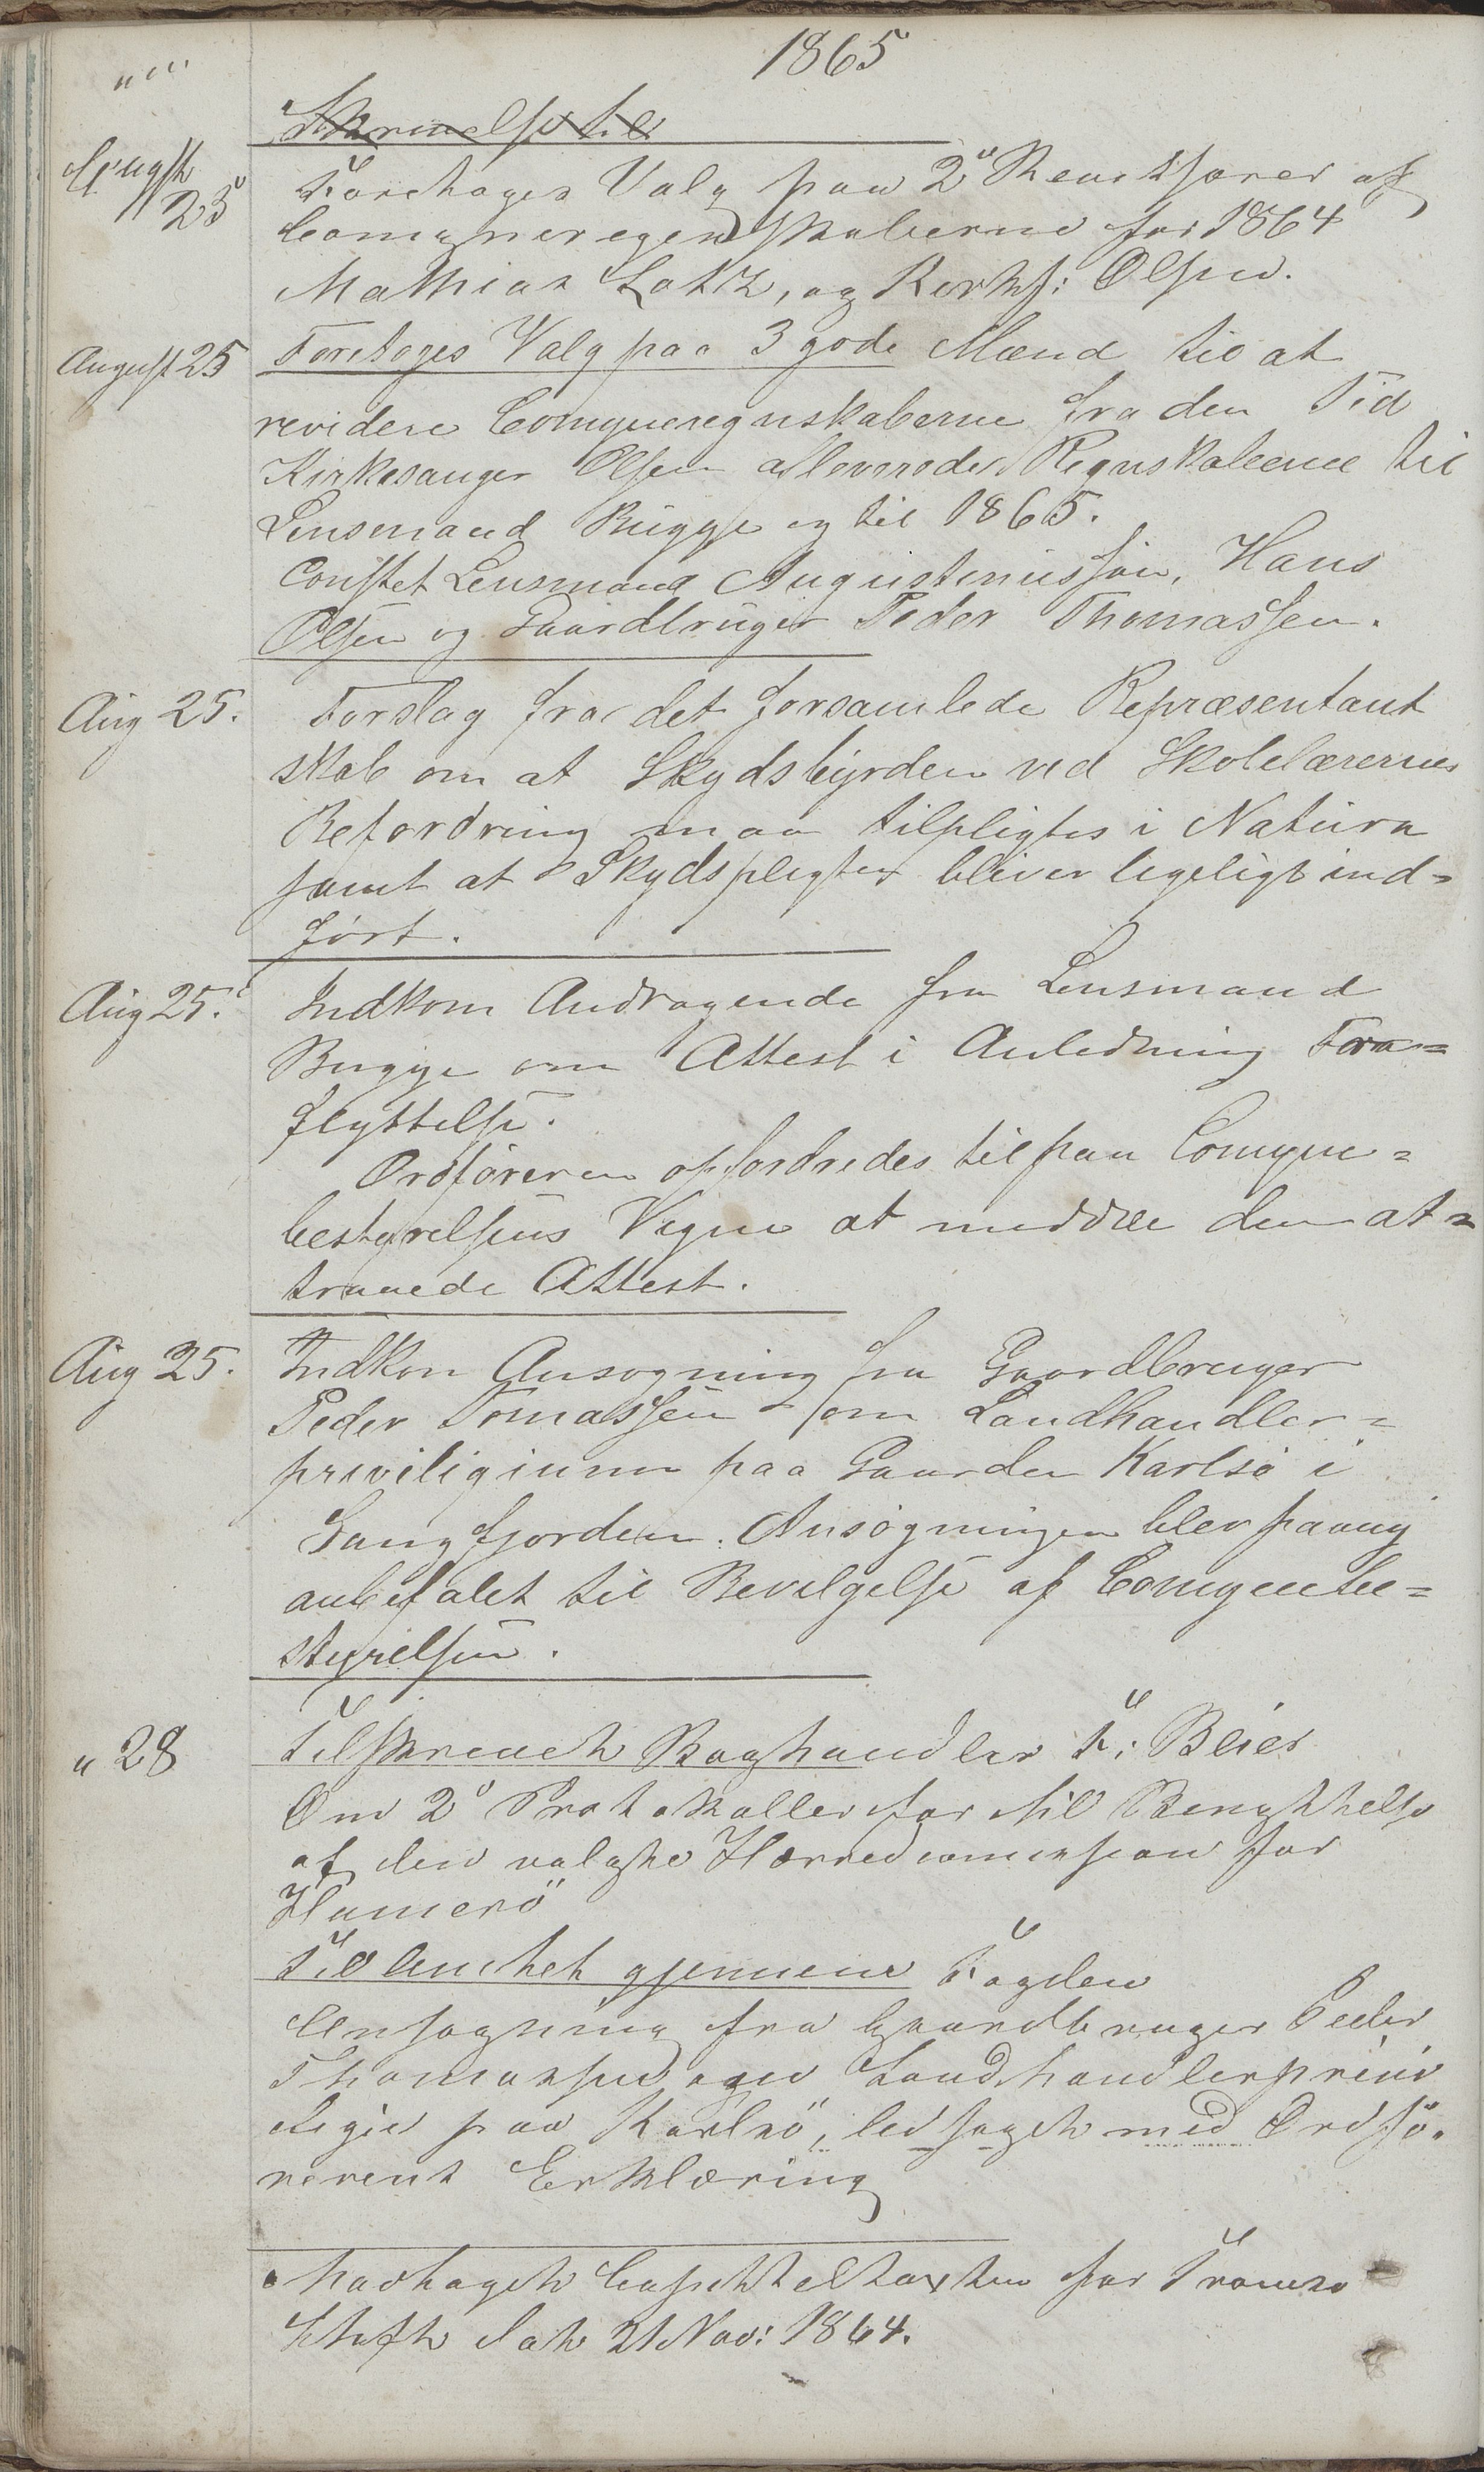 1865
" " "
Skrivelse til
August
25
Foretoges Valg paa 2de Revisorer af
Comuneregenskaberne for 1864
Mathias Lotz, og Kirks: Olsen.
August 25
Foretoges Valg paa 3 gode Mænd til at
revidere Comuneregnskaberne fra den Tid
Kirkesanger Olsen afleverede Regnskaberne til
Lensmand Bugge og til 1865.
Constet Lensmand Augustinussøn, Hans
Olsen og Gaardbruger Peder Thomassen.
Aug 25.
Forslag fra det forsamlede Repræsentant
skab om at Skydsbyrden ved Skolelærernes
Befordring maa tilpligtes i Natura
samt at Skydspligten bliver ligeligt ind=
ført.
Aug 25.
Indkom Andragende fra Lensmand
Bugge om Attest i Anledning Fra=
flyttelse.
Ordføreren opfordredes til paa Comune=
bestyrelsens Vegne at meddele den at=
traaede Attest.
Aug 25.
Indkom Ansøgning fra Gaardbruger
Peder Tomassen om Landhandler=
priviligium paa Gaarden Karlsø i
Sangfjorden. Ansøgningen blev
anbefalet til Bevilgelse af Comunebe=
styrelsen.
" 28
Tilskrevet Boghandler F: Beier
Om 2de Protokoller for til Benyttelse
af den valgte Herredcomission for
Hamerö
Til Amtet gjennem Fogden
Ansøgning fra Gaardbruger Peder
Thomassen om Landhandlerprivi
legie paa Karlsö, ledsaget med Ordfö=
rerens Erklæring
Modtaget Capiteltaxten for Tromsø
Stift dat 21 Nov: 1864.